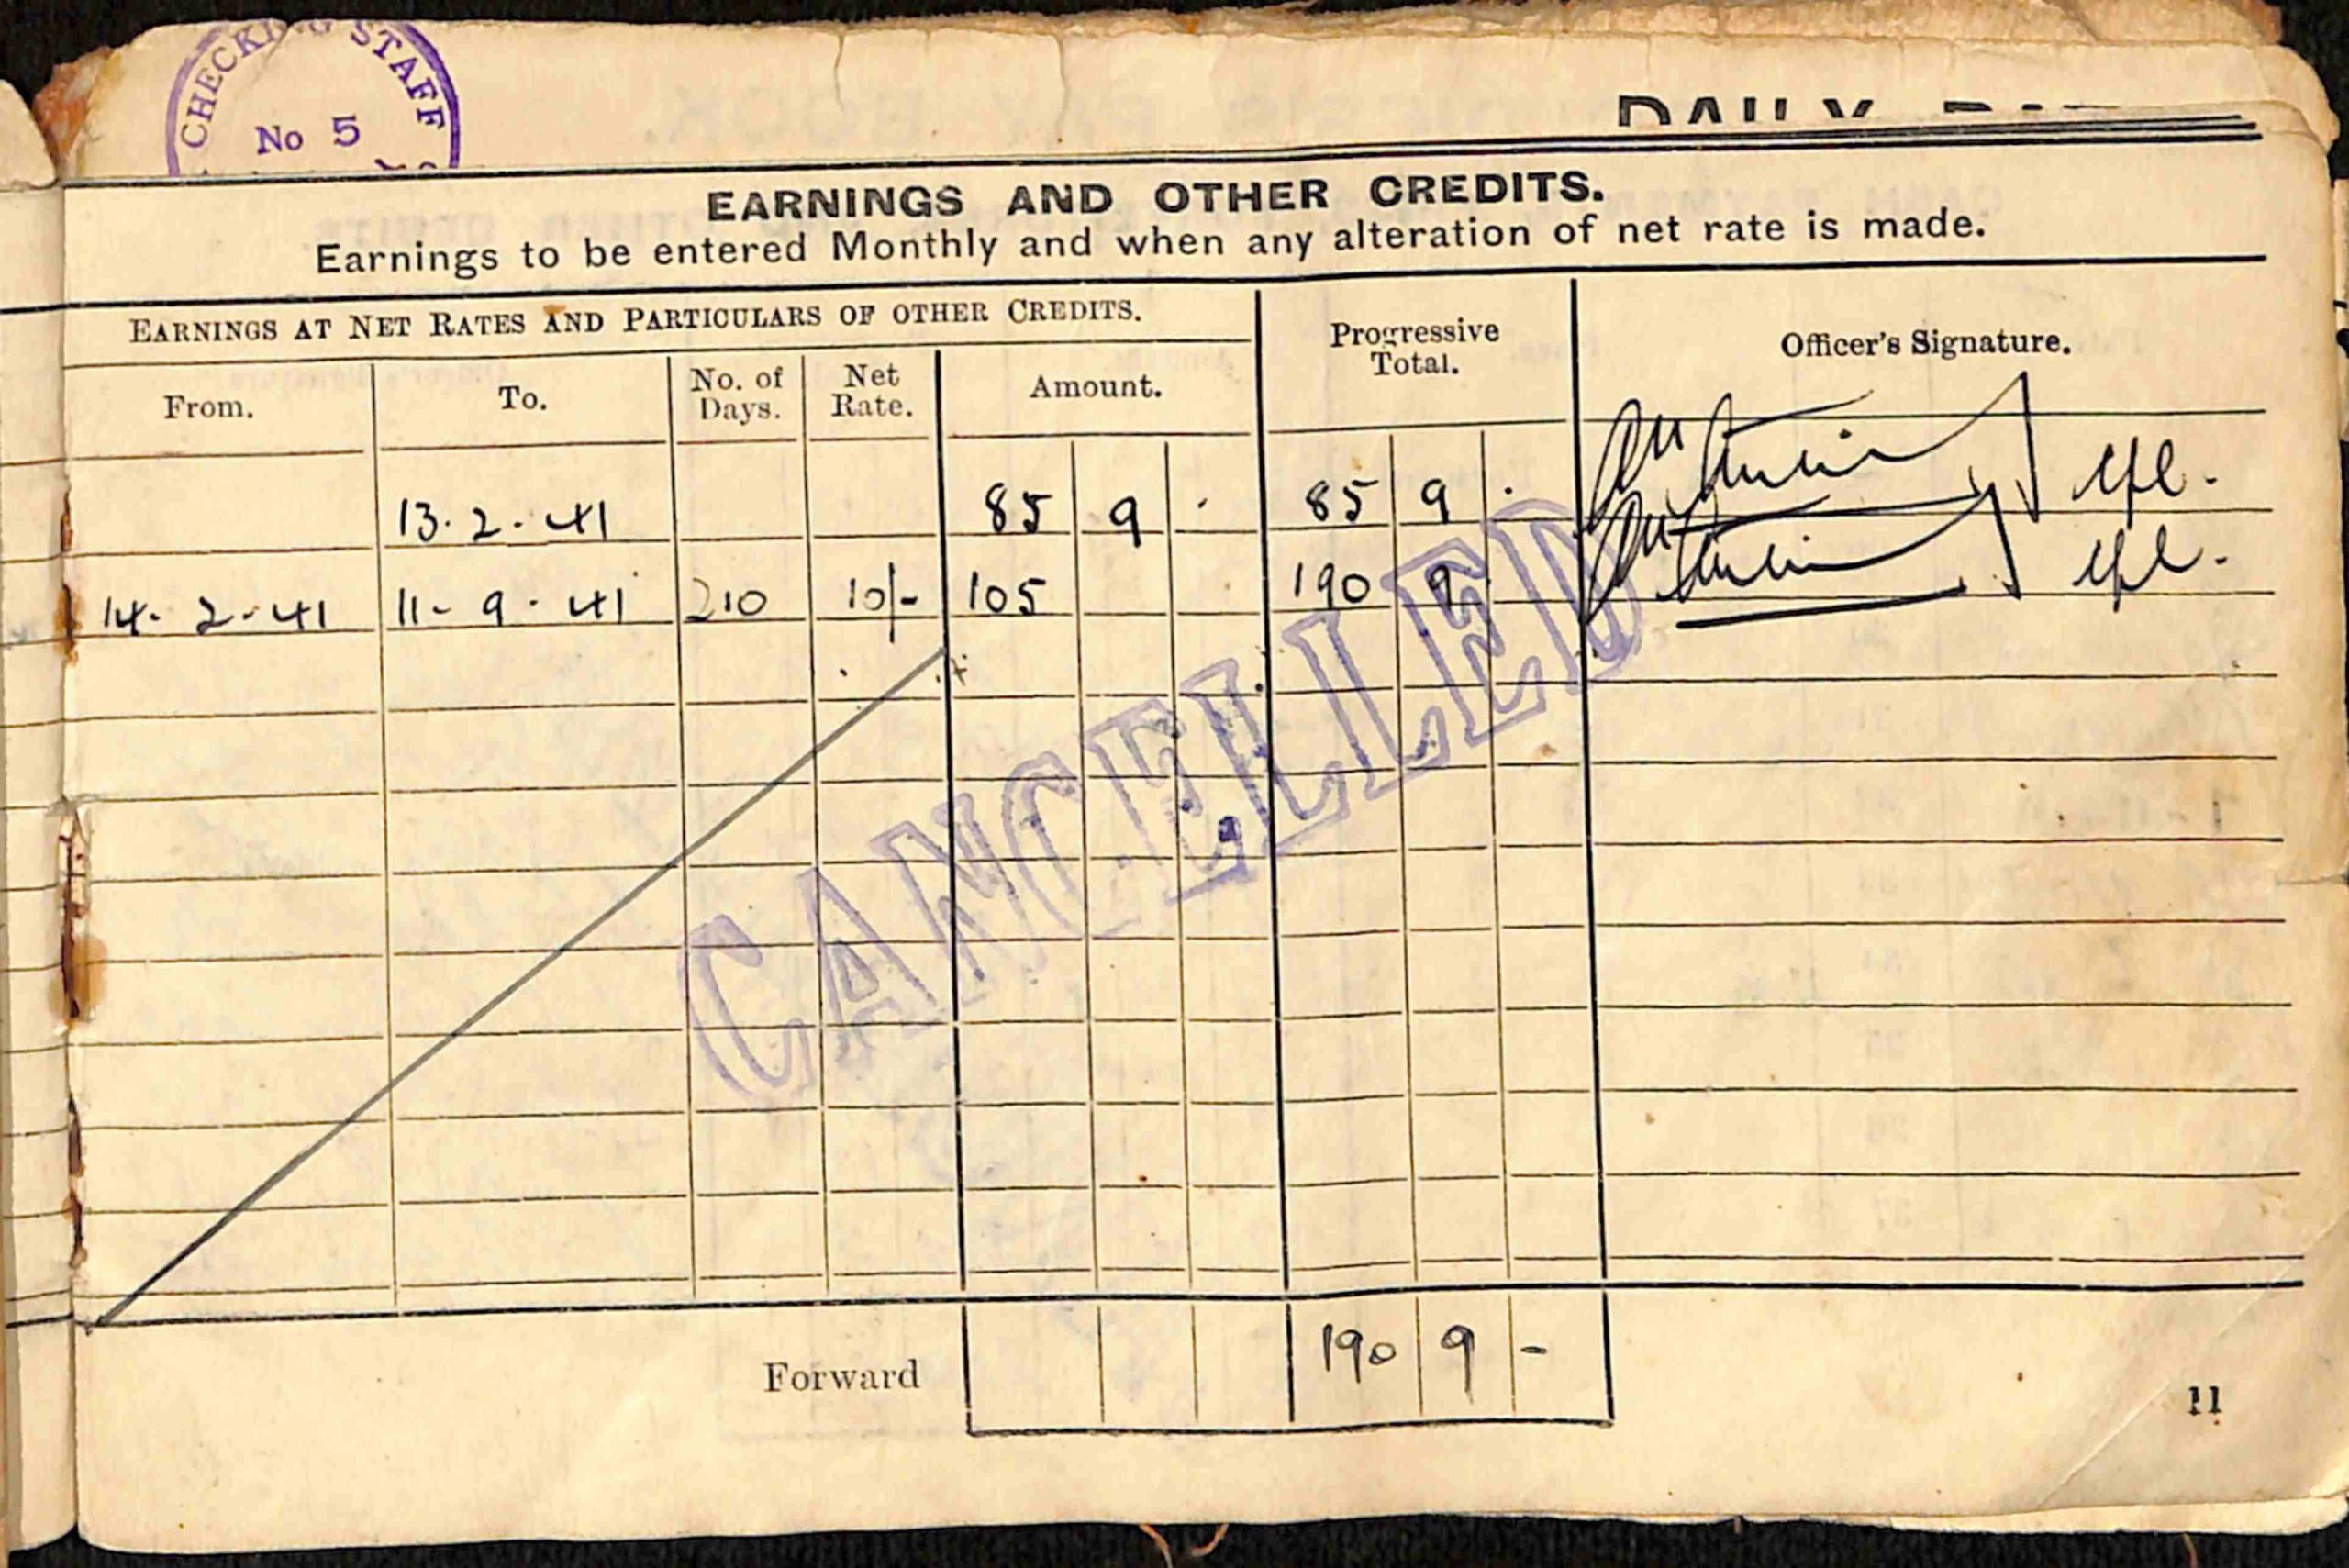 CHECKING STAFF
No 5
DAILY
EARNINGS AND OTHER CREDITS.
Earnings to be entered Monthly and when any alteration of net rate is made.
EARNINGS AT NET RATES AND PARTICULARS OF OTHER CREDITS.
Progressive Total.
Officer's Signature.
From. To. No. of Days. Net Rate. Amount.
13.2.41 85 9 . 85 9 .
14-2-41 11-9-41 210 10/- 105 190 9 .
CANCELLED
Forward 190 9 -
11